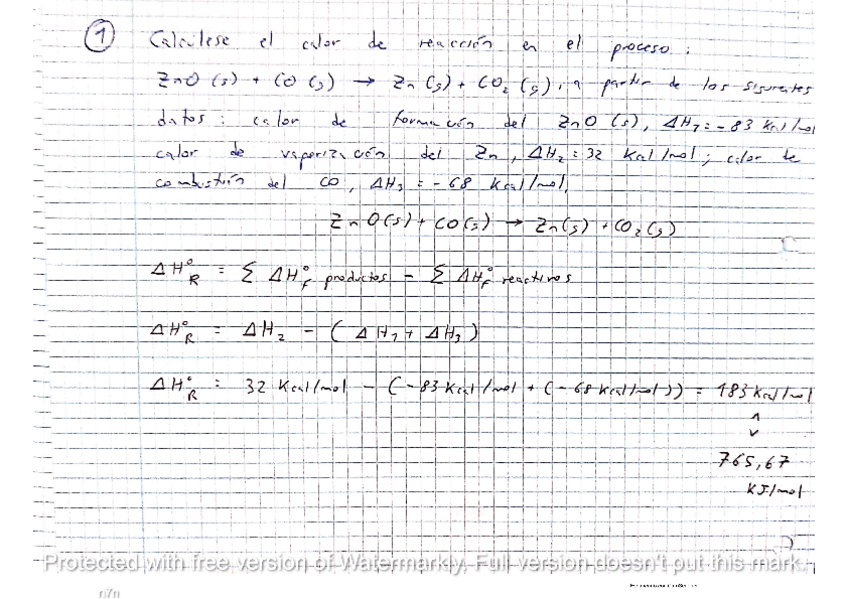 ① Calculese el calor de reacción en el proceso:
ZnO(s) + CO(g) → Zn(g) + CO₂(g), a partir de los siguientes
datos: calor de formación del ZnO(s), ΔH₁ = -83 Kcal/mol
calor de vaporización del Zn, ΔH₂ = 32 Kcal/mol; calor de
combustión del CO, ΔH₃ = -68 Kcal/mol.
ZnO(s) + CO(g) → Zn(g) + CO₂(g)
ΔH°R = Σ ΔH°f productos - Σ ΔH°f reactivos
ΔH°R = ΔH₂ - (ΔH₁ + ΔH₃)
ΔH°R = 32 Kcal/mol - (-83 Kcal/mol + (-68 Kcal/mol)) = 183 Kcal/mol
765,67
KJ/mol
Protected with free version of Watermarkly. Full version doesn't put this mark.